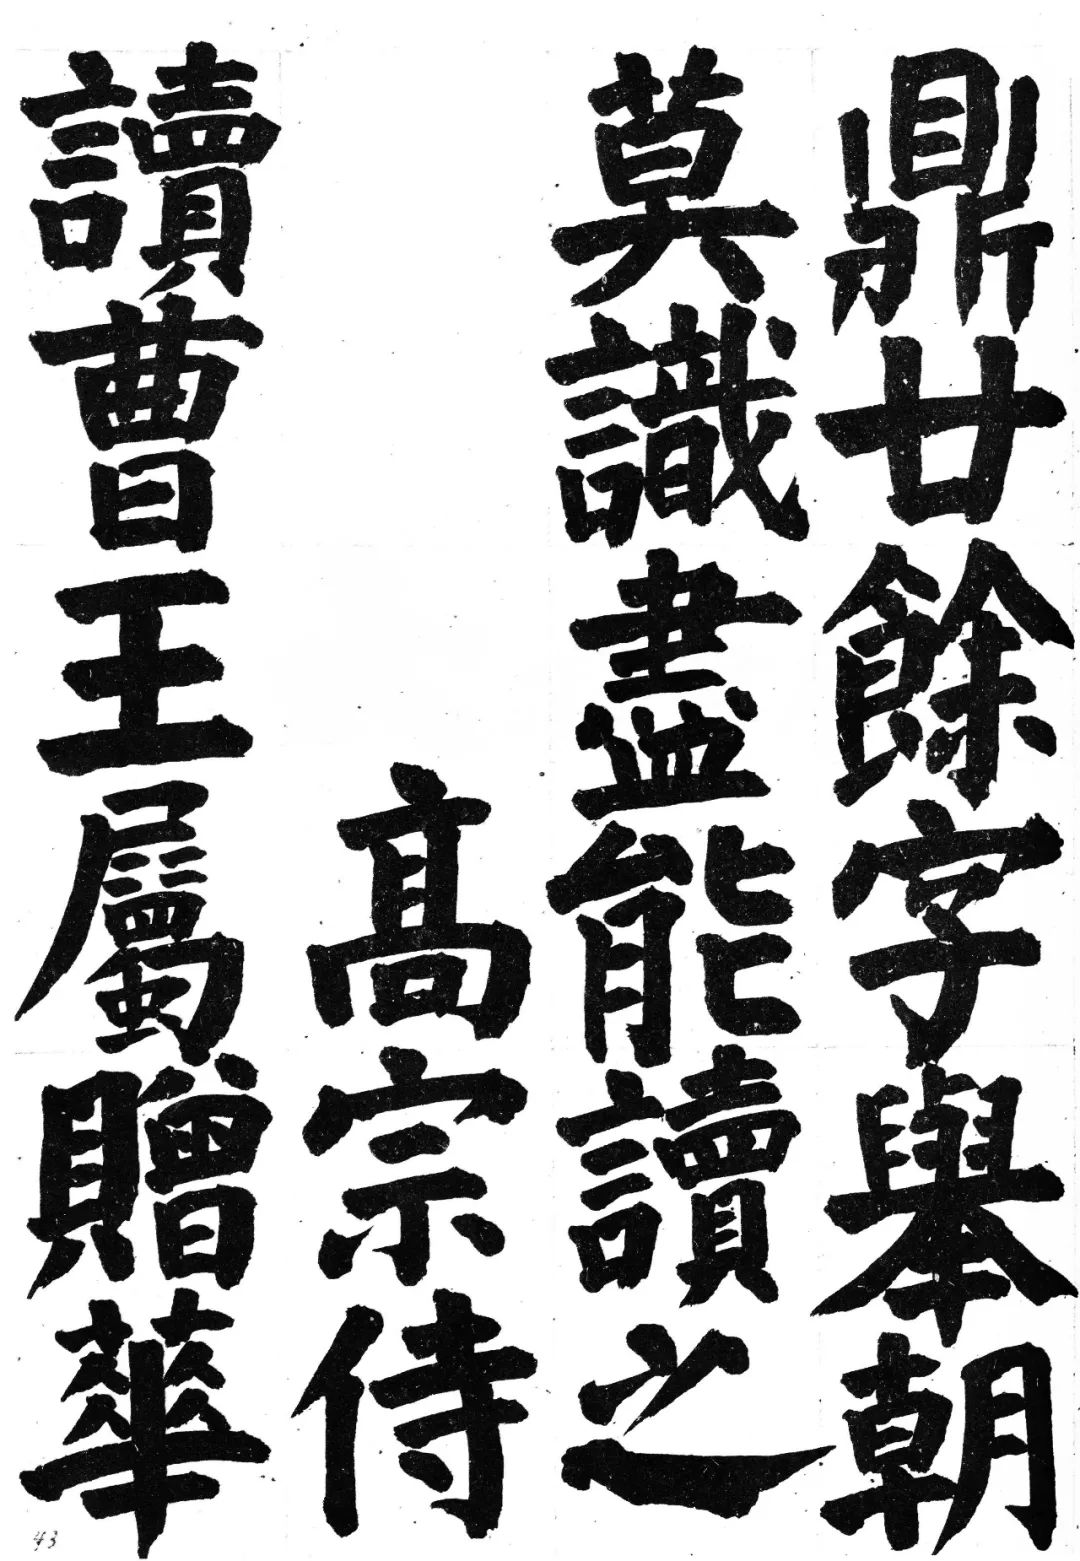 鼎廿餘字舉朝
莫識盡能讀之
高宗侍
讀曹王屬贈華
43